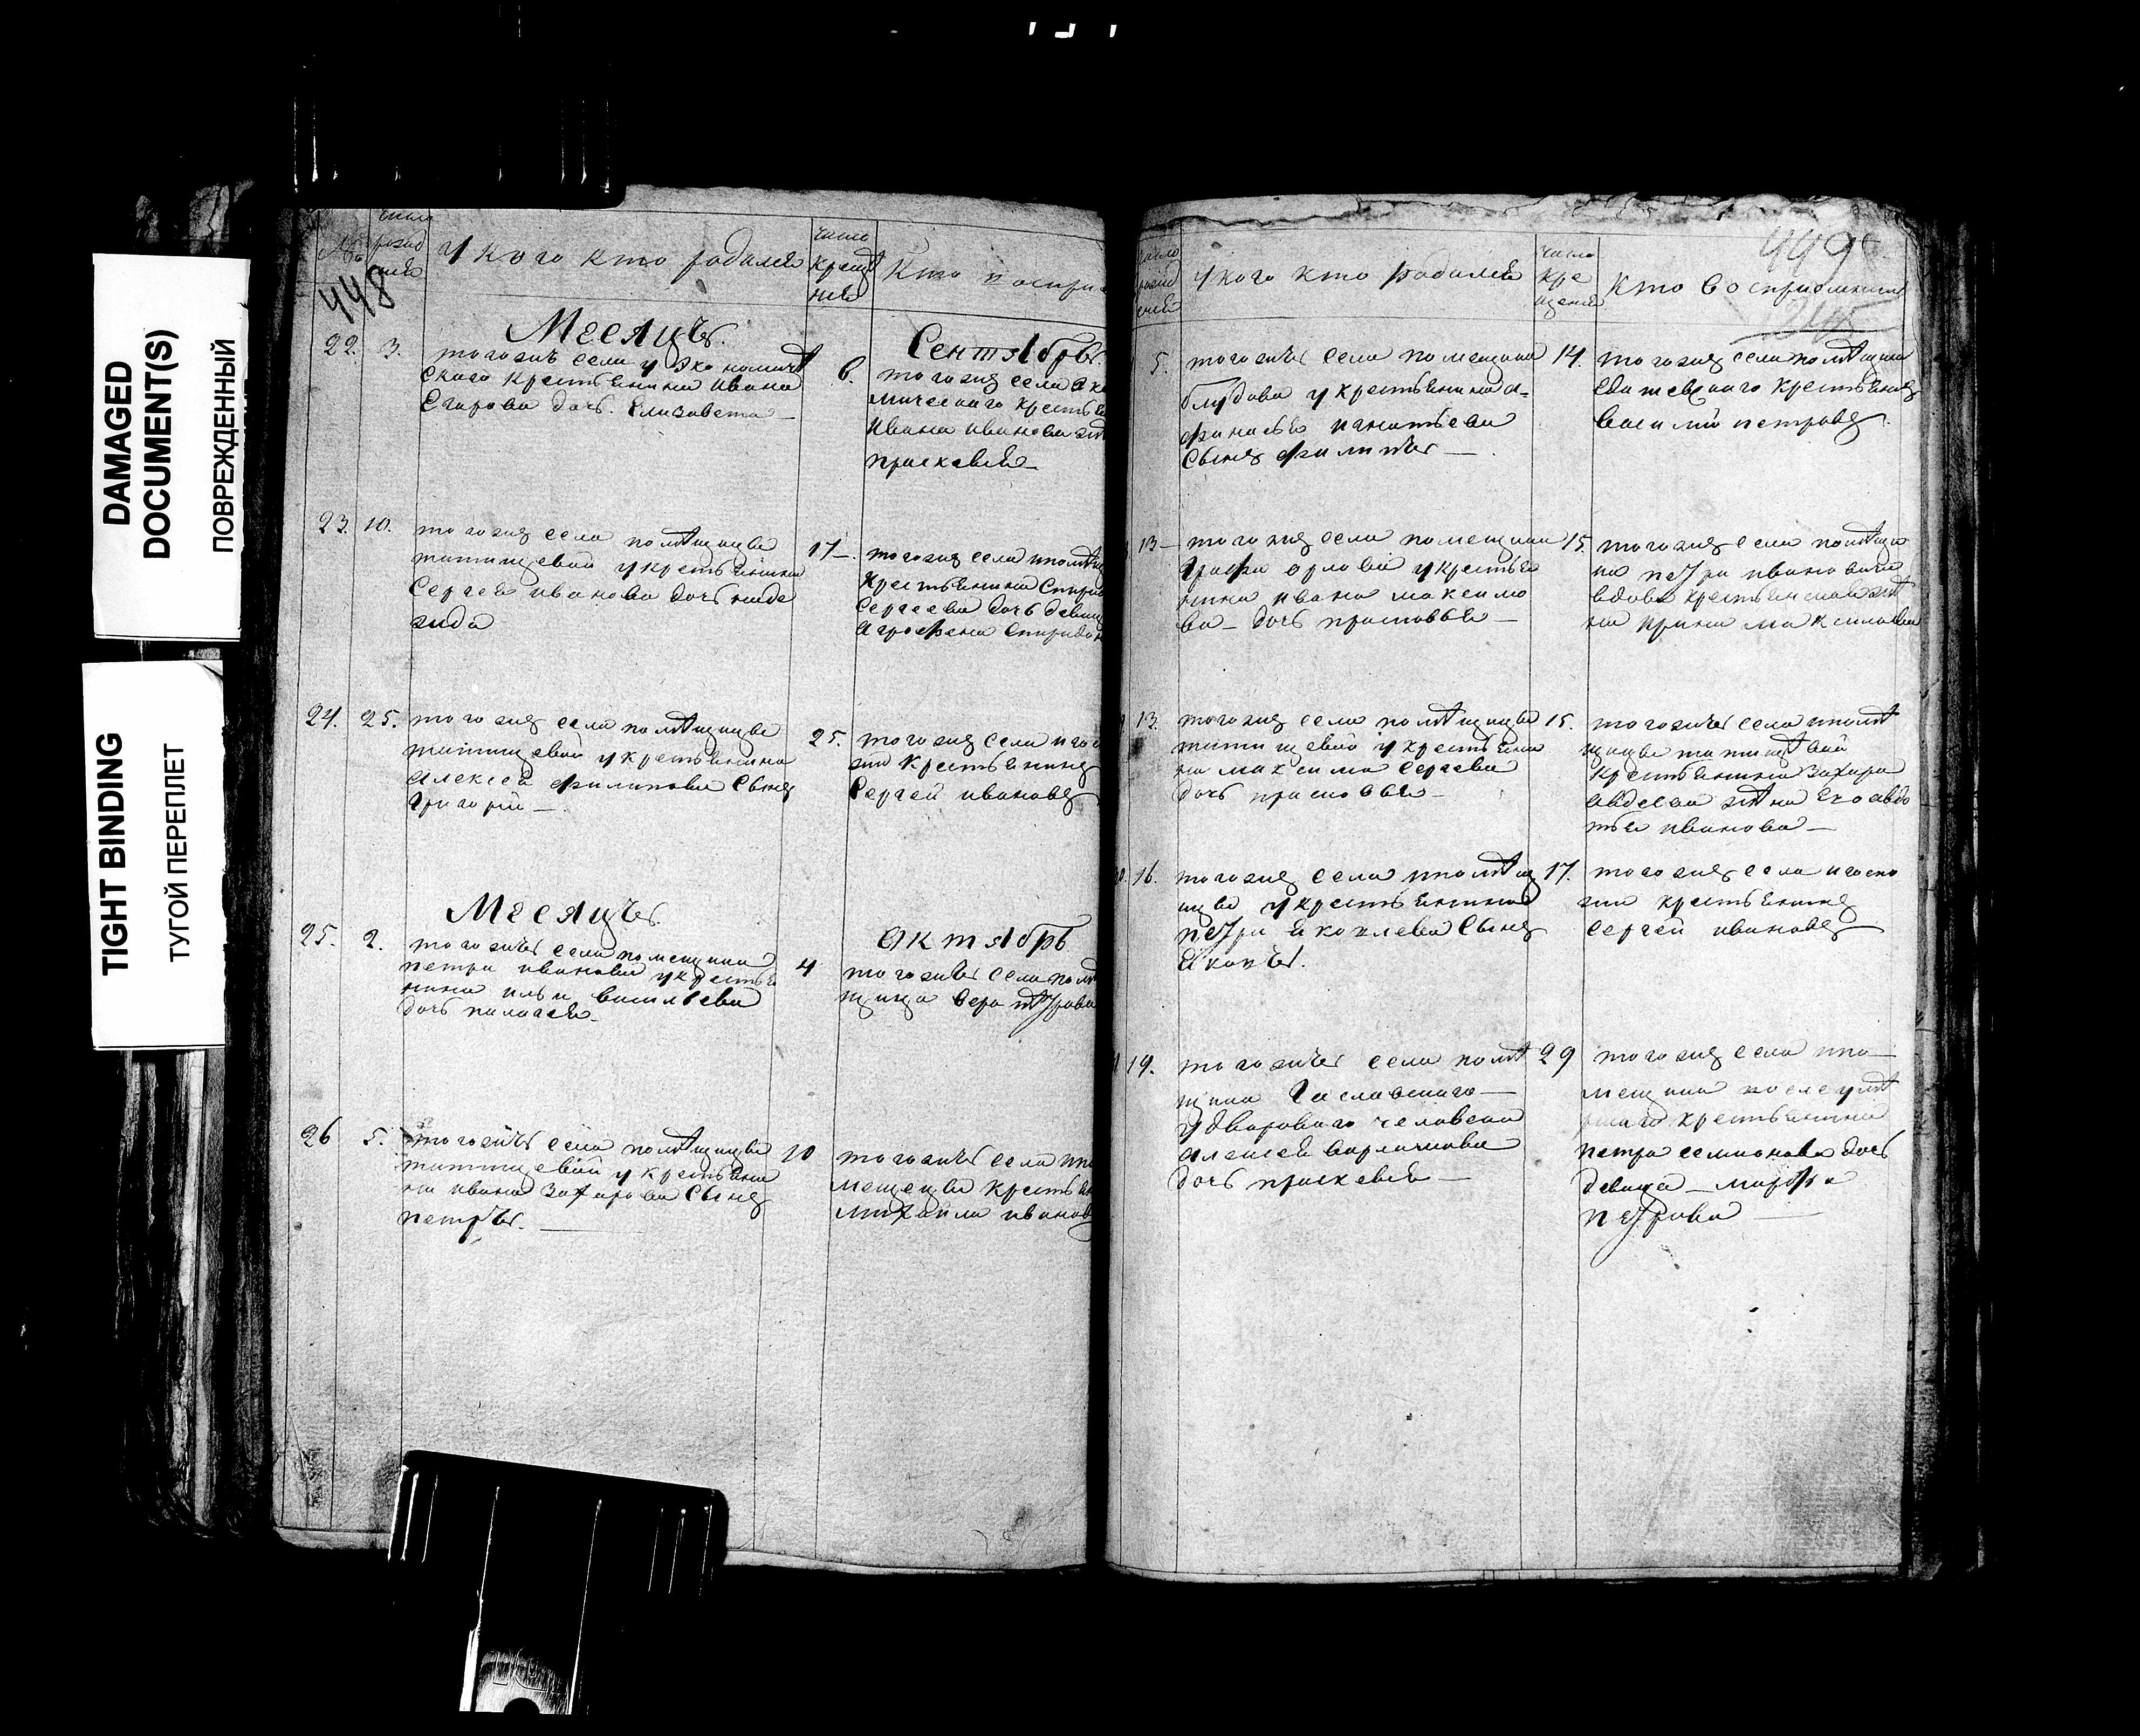 DAMAGED
DOCUMENT(S)
ПОВРЕЖДЕННЫЙ
TIGHT BINDING
ТУГОЙ ПЕРЕПЛЕТ
448
№
число
рожд
у кого кто родился
число
крещ
нія
Кто воспри
Месяцъ
Сентябрь
22. 3.
тогожъ села у экономиче
скаго крестьянина Ивана
Егорова дочь Елизавета
6.
тогожъ села эко
мическаго крестья
Ивана Иванова
прасковья
23. 10.
тогожъ села помещицы
татищевой у крестьянина
Сергея иванова дочь наде
жда
17
тогожъ села
крестьянина Спири
Сергеева дочь девиц
Агрофена Спиридо
24. 25.
тогожъ села помещицы
татищевой у крестьянина
алексея филипова сынъ
Григорій
25.
тогожъ села и гос
жи крестьянинъ
Сергей ивановъ
Месяцъ
Октябрь
25. 2.
тогожъ села помещика
петра иванова у крестья
нина ильи васильева
дочь палагея
4
тогожъ села поме
щица вера петрова
26 5.
тогожъ села помещицы
татищевой у крестьяни
на ивана захарова сынъ
петръ.
10
тогожъ села
мещицы крестья
михаила иванов
449
число
рожд
у кого кто родился
число
кре
щенія
Кто воспріемники
5.
тогожъ села помещика
блудова у крестьянина а=
фанасья игнатьева
сынъ филипъ
14.
тогожъ села помещика
крестьянинъ
василий петровъ
13
тогожъ села помещика
Графа орлова у крестья
нина ивана максимо
ва дочь прасковья
15.
тогожъ села помещи
ка петра ивановича
вдова крестьянская же
на ирина максимова
13.
тогожъ села помещицы
татищевой у крестьяни
на максима сергеева
дочь прасковья
15.
тогожъ села поме
щицы татищевой
крестьянина захара
авдеева жена его авдо
тья иванова
16.
тогожъ села помещ
ицы у крестьянина
петра яковлева сынъ
яковъ.
17.
тогожъ села и госпо
жи крестьянинъ
сергей ивановъ
19.
тогожъ села поме
щика
у двороваго человека
алексея
дочь прасковья
29
тогожъ села по
мещика
крестьянина
петра семионова дочь
девица марфа
петрова